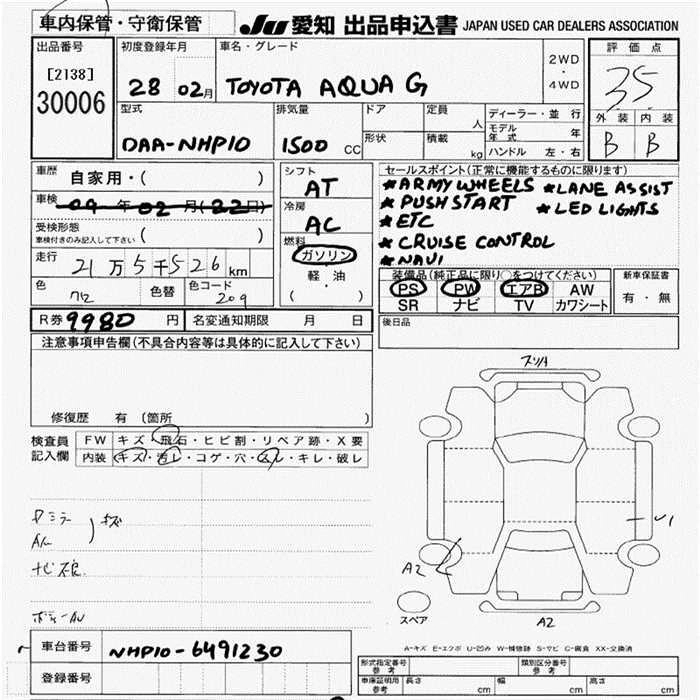 車内保管・守衛保管
JU 愛知 出品申込書 JAPAN USED CAR DEALERS ASSOCIATION
出品番号
[2138]
30006
初度登録年月
28 02月
車名・グレード
TOYOTA AQUA G
2WD
・
4WD
評価点
35
外装 内装
B B
型式
DAA-NHP10
排気量
1500 CC
ドア
形状
定員
人
積載
kg
ディーラー・並行
モデル年式 年
ハンドル 左・右
車歴
自家用・( )
車検
04年02月(22日)
受検形態
車検付きのみ記入して下さい ( )
走行
21万5千526km
色
色替
色コード
209
シフト
AT
冷房
AC
燃料
ガソリン
軽・油
( )
セールスポイント(正常に機能するものに限ります)
★ARMY WHEELS ★LANE ASSIST
★PUSH START ★LED LIGHTS
★ETC
★CRUISE CONTROL
★NAVI
装備品(純正品に限り○をつけてください)
PS PW エアB AW
SR ナビ TV カワシート
新車保証書
有・無
R券 9980 円
名変通知期限 月 日
後日品
注意事項申告欄(不具合内容等は具体的に記入して下さい)
修復歴 有 (箇所 )
検査員記入欄
FW キズ・飛石・ヒビ割・リペア跡・X要
内装 キズ・汚レ・コゲ・穴・スレ・キレ・破レ
スリハ
キズ
ナビ不良
A2
スペア
A2
A-キズ E-エクボ U-凹み W-補修跡 S-サビ C-腐食 XX-交換済
車台番号
NHP10-6491230
登録番号
形式指定番号 参考
類別区分番号 参考
車庫証明用 参考
長さ cm 幅 cm 高さ cm